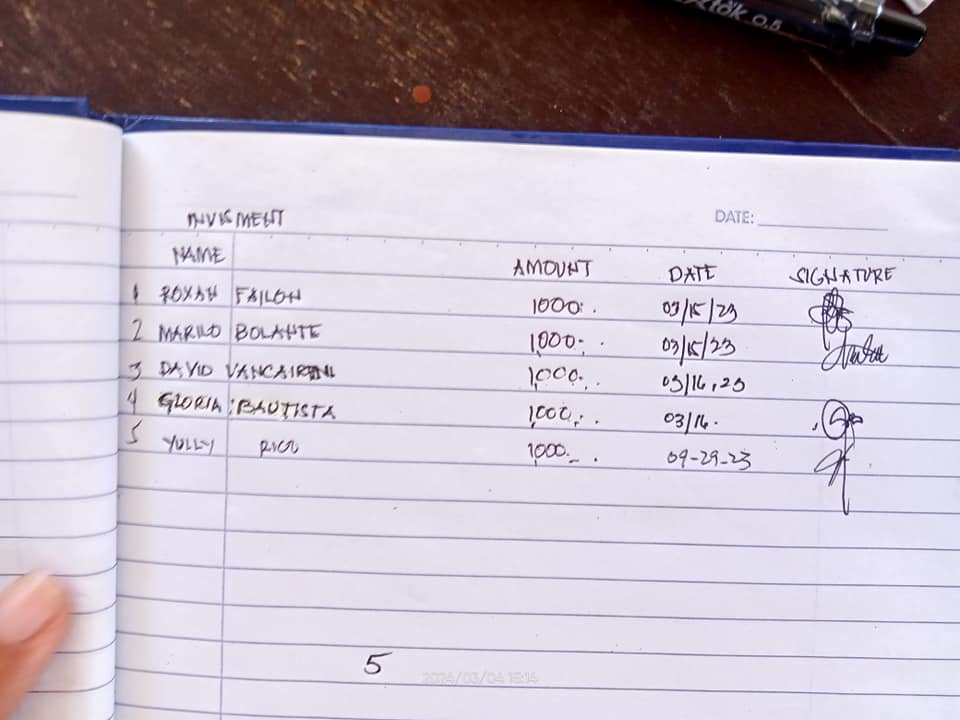 tök 0.5
INVISMENT DATE:
NAME AMOUNT DATE SIGNATURE
1 ROXAN FAILON 1000. . 03/15/23
2 MARILO BOLANTE 1000. . 03/15/23
3 DAVID 1,000. . 03/16,23
4 GLORIA : BAUTISTA 1000. . 03/16.
5 YULLY RICO 1,000. . 09-29-23
5
2024/03/04 15:14